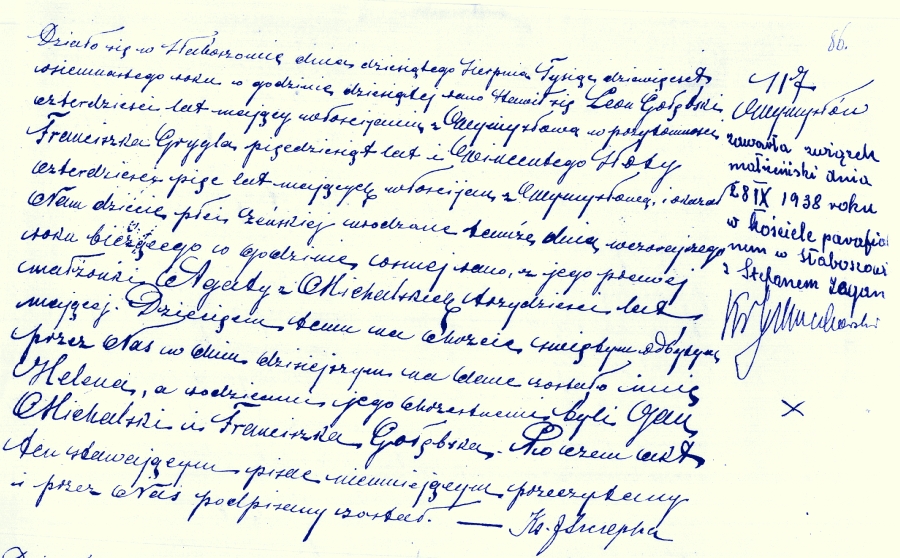 86.
Działo się w Słaboszowie dnia dziesiątego Sierpnia Tysiąc dziewięćset
osiemnastego roku o godzinie dziesiątej rano Stawił się Leon Gołębski
czterdzieści lat mający włościjanin z w przytomności
Franciszka Grygla pięćdziesiąt lat i Wincentego Noty
czterdzieści pięć lat mających włościjan z i okazał
Nam dziecię płci żeńskiej urodzone tamże dnia wczorajszego
roku bieżącego o godzinie ósmej rano, z jego prawej
małżonki Agaty z Michalskich trzydzieści lat
mającej. Dziecięciu temu na chrzcie świętym odbytym
przez Nas w dniu dzisiejszym na dane zostało imię
Helena, a rodzicami jego chrzestnemi byli Jan
Michalski i Franciszka Gołębska. Poczem akt
ten stawającym pisać nieumiejącym przeczytany
i przez Nas podpisany został. — Ks. J Szczepka
117
zawarła związek
małżeński dnia
28 IX 1938 roku
w kościele parafial
nym w Słaboszowi
z Stefanem Zagan